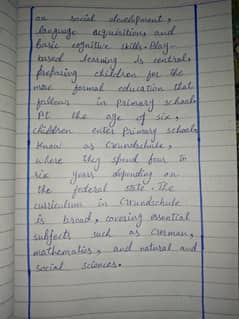 on social development,
language acquisitions, and
basic cognitive skills. Play-
based learning is central,
preparing children for the
more formal education that
follows in primary school.
At the age of six,
children enter primary school,
know as Grundschule,
where they spend four to
six years depending on
the federal state. The
curriculum in Grundschule
is broad, covering essential
subjects such as German,
mathematics, and natural and
social sciences.